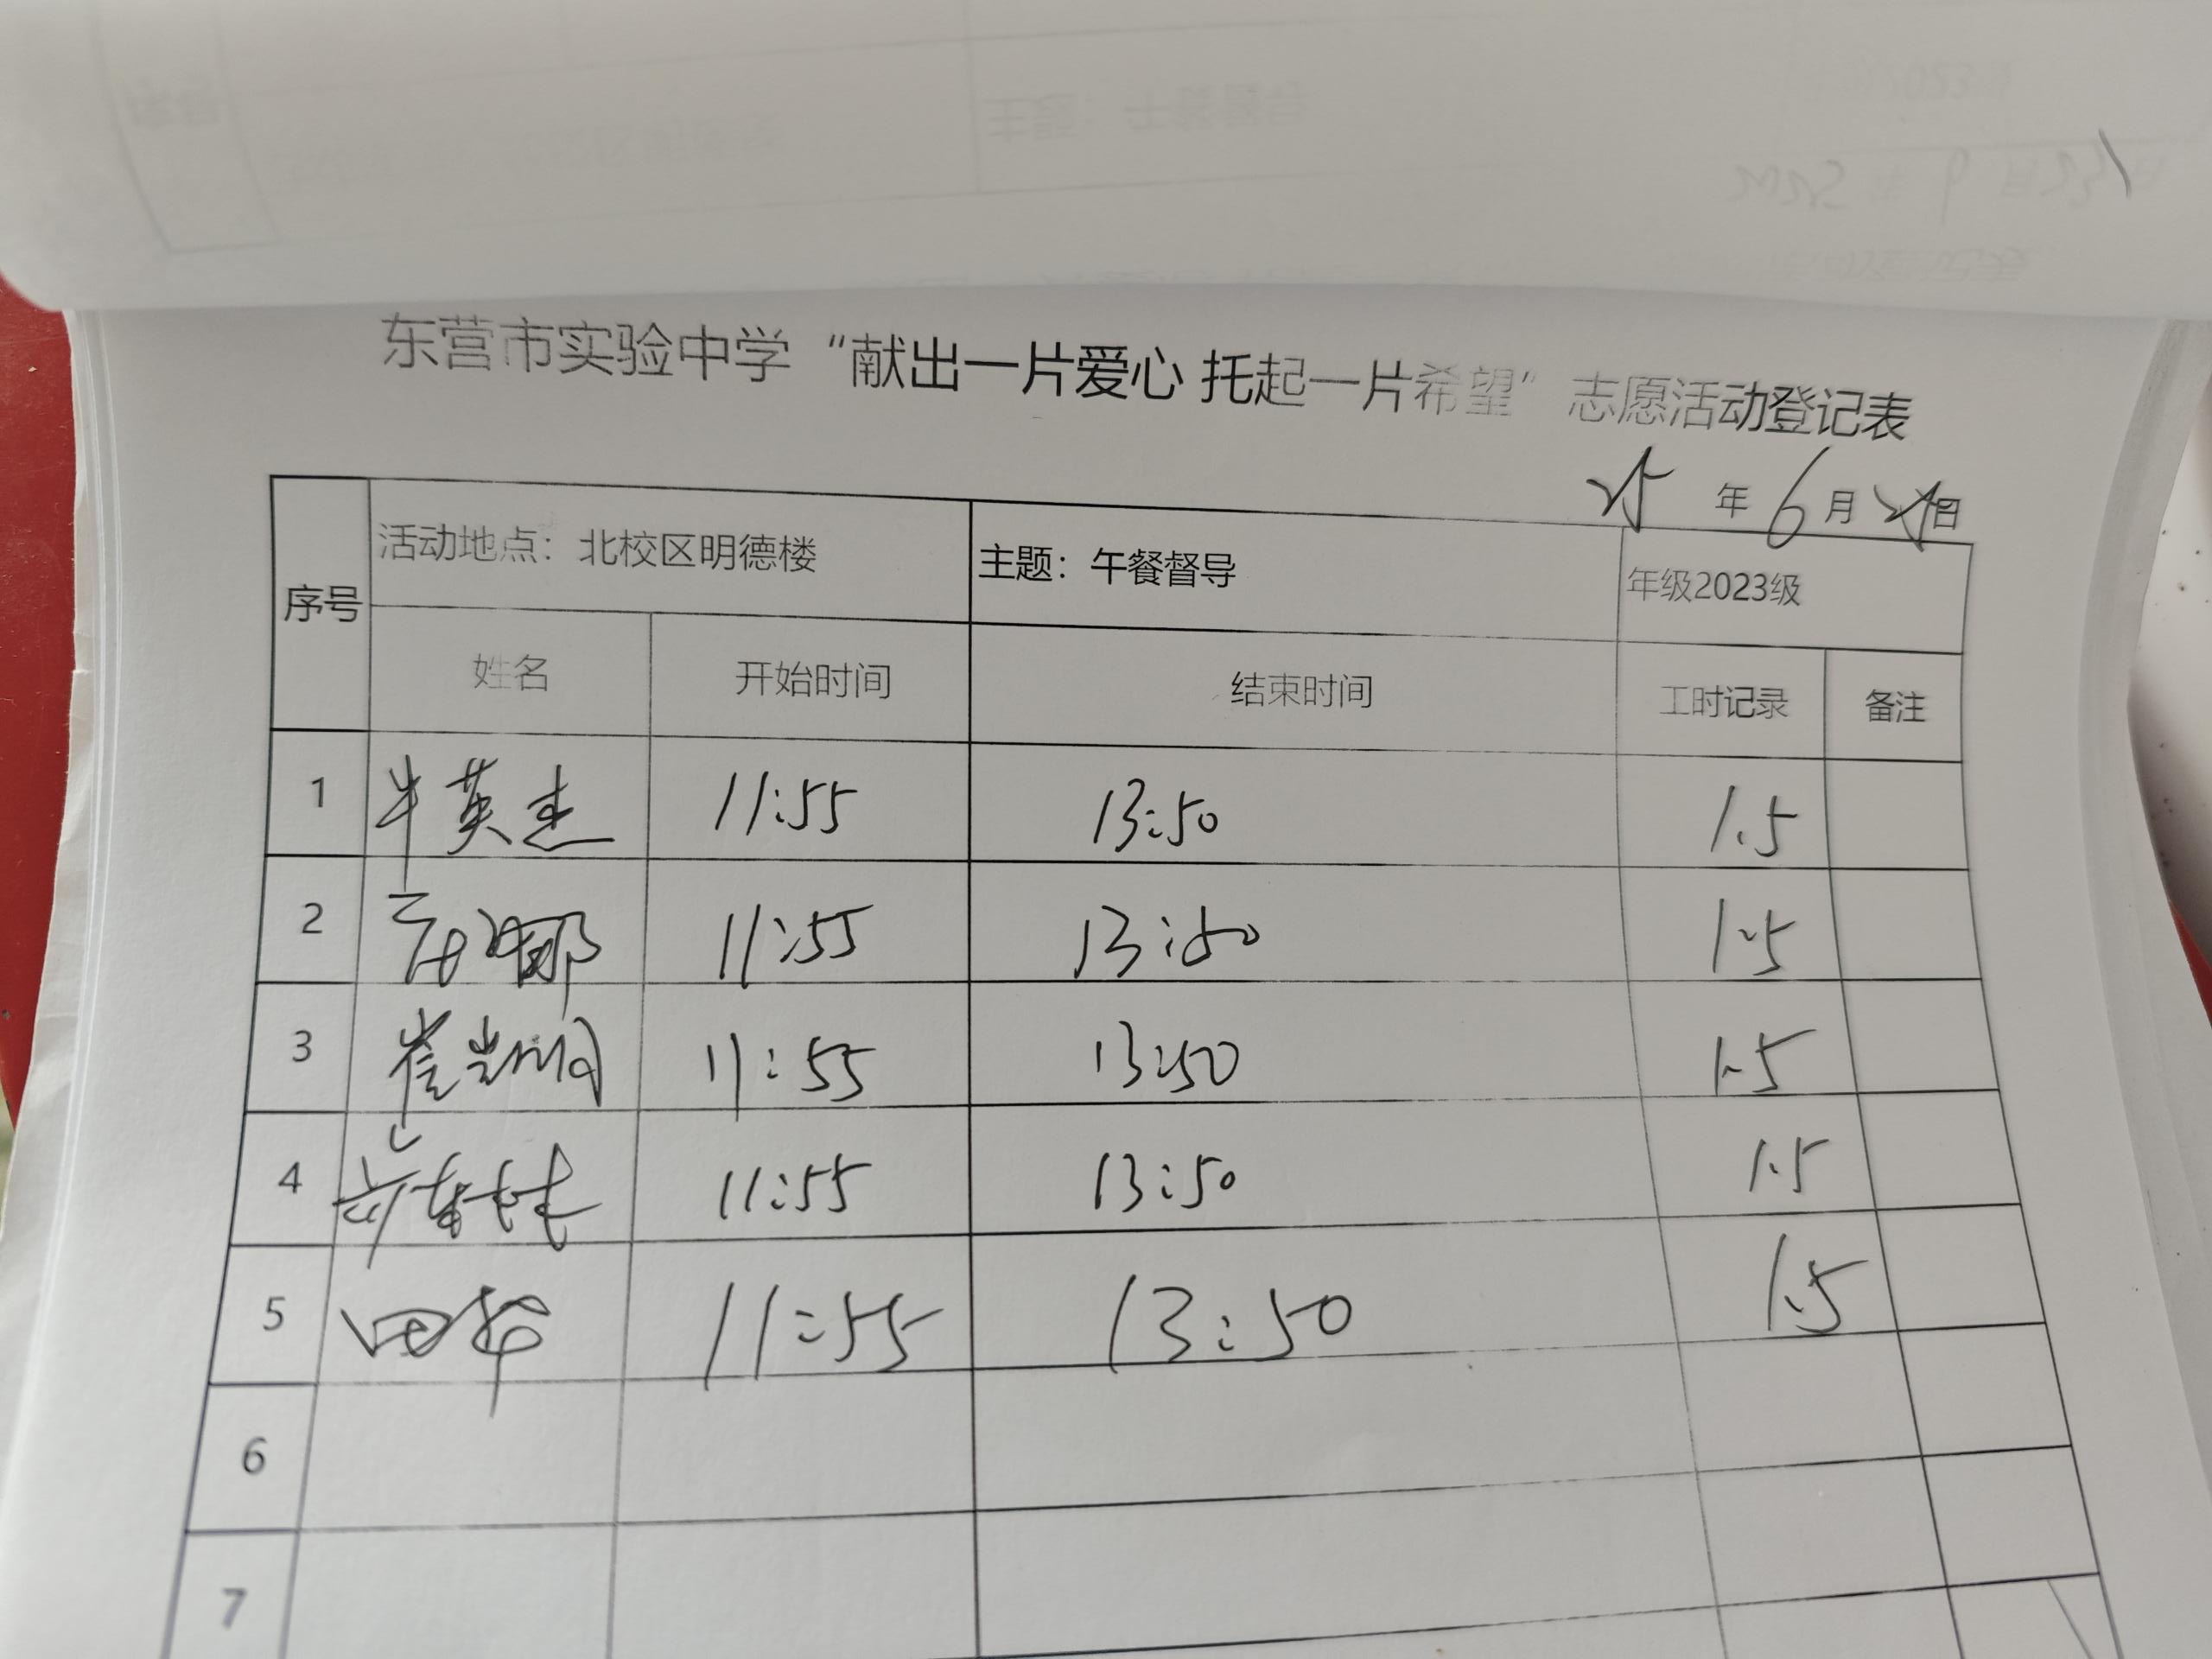 东营市实验中学“献出一片爱心 托起一片希望”志愿活动登记表
25 年 6 月 日
序号 活动地点：北校区明德楼 主题：午餐督导 年级2023级
姓名 开始时间 结束时间 工时记录 备注
1 牛英杰 11:55 13:50 1.5
2 11:55 13:50 1.5
3 崔岩明 11:55 13:50 1.5
4 11:55 13:50 1.5
5 田华 11:55 13:50 1.5
6
7